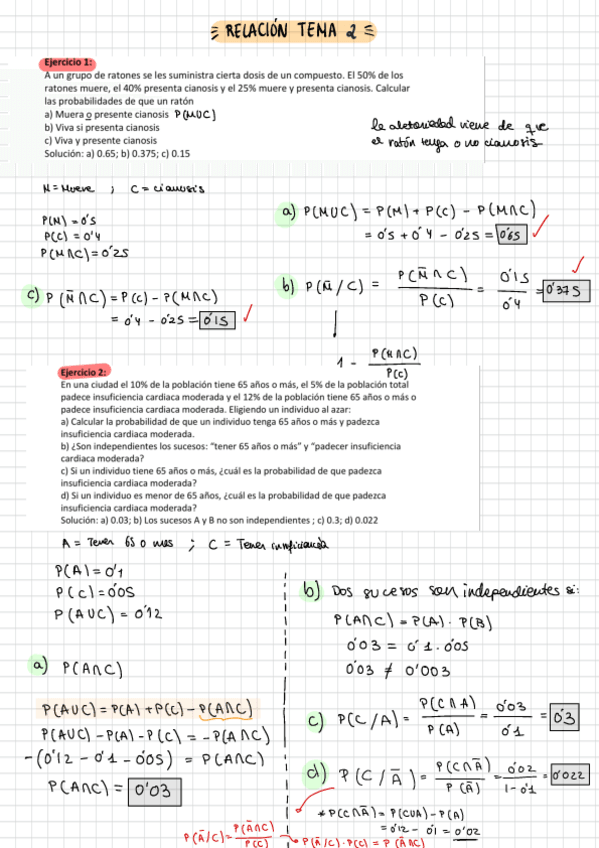 RELACIÓN TEMA 2
Ejercicio 1:
A un grupo de ratones se les suministra cierta dosis de un compuesto. El 50% de los
ratones muere, el 40% presenta cianosis y el 25% muere y presenta cianosis. Calcular
las probabilidades de que un ratón
a) Muera o presente cianosis P(MUC)
b) Viva si presenta cianosis
c) Viva y presente cianosis
Solución: a) 0.65; b) 0.375; c) 0.15
la aletoriedad viene de que
el ratón tenga o no cianosis
M = Muere ; C = cianosis
P(M) = 0'5
P(C) = 0'4
P(M∩C) = 0'25
a) P(MUC) = P(M) + P(C) - P(M∩C)
= 0'5 + 0'4 - 0'25 = 0'65
c) P(M̄∩C) = P(C) - P(M∩C)
= 0'4 - 0'25 = 0'15
b) P(M̄/C) = P(M̄∩C) / P(C) = 0'15 / 0'4 = 0'375
1 - P(M∩C) / P(C)
Ejercicio 2:
En una ciudad el 10% de la población tiene 65 años o más, el 5% de la población total
padece insuficiencia cardiaca moderada y el 12% de la población tiene 65 años o más o
padece insuficiencia cardiaca moderada. Eligiendo un individuo al azar:
a) Calcular la probabilidad de que un individuo tenga 65 años o más y padezca
insuficiencia cardiaca moderada.
b) ¿Son independientes los sucesos: "tener 65 años o más" y "padecer insuficiencia
cardiaca moderada?
c) Si un individuo tiene 65 años o más, ¿cuál es la probabilidad de que padezca
insuficiencia cardiaca moderada?
d) Si un individuo es menor de 65 años, ¿cuál es la probabilidad de que padezca
insuficiencia cardiaca moderada?
Solución: a) 0.03; b) Los sucesos A y B no son independientes ; c) 0.3; d) 0.022
A = Tener 65 o más ; C = Tener insuficiencia
P(A) = 0'1
P(C) = 0'05
P(AUC) = 0'12
a) P(A∩C)
P(AUC) = P(A) + P(C) - P(A∩C)
P(AUC) - P(A) - P(C) = - P(A∩C)
-(0'12 - 0'1 - 0'05) = P(A∩C)
P(A∩C) = 0'03
b) Dos sucesos son independientes si:
P(A∩C) = P(A) · P(B)
0'03 = 0'1 · 0'05
0'03 ≠ 0'003
c) P(C/A) = P(C∩A) / P(A) = 0'03 / 0'1 = 0'3
d) P(C/Ā) = P(C∩Ā) / P(Ā) = 0'02 / 1-0'1 = 0'022
* P(C∩Ā) = P(CUA) - P(A)
= 0'12 - 0'1 = 0'02
P(Ā/C) = P(Ā∩C) / P(C) → P(Ā/C) · P(C) = P(Ā∩C)